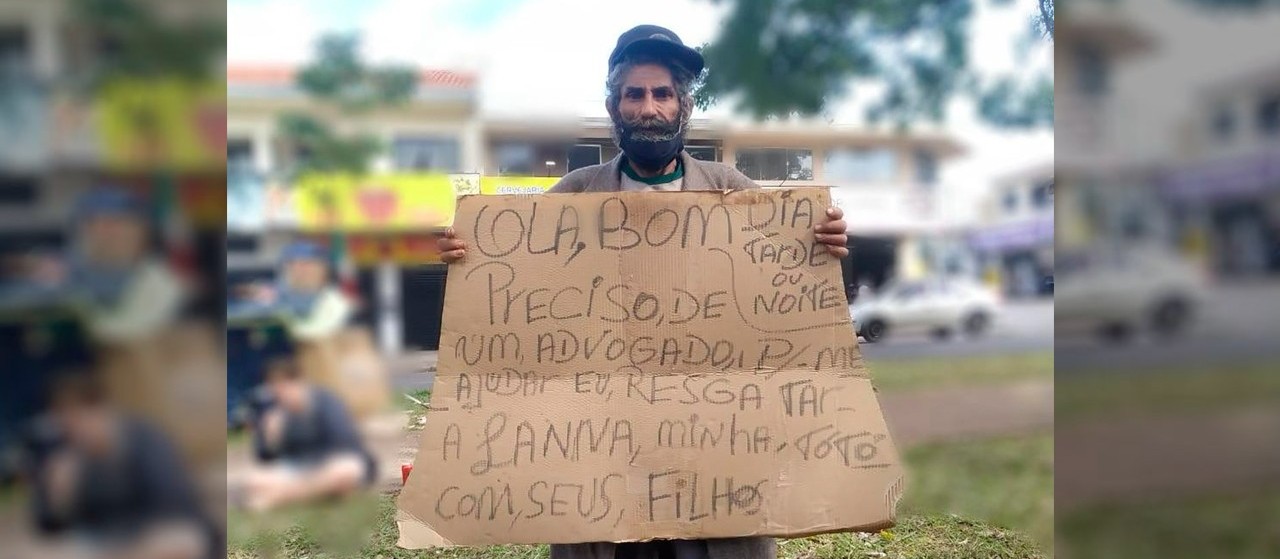 CERVEJARIA
OLA, BOM DIA
TARDE
OU
NOITE
PRECISO, DE
NUM, ADVOGADO, P/ ME
AJUDAR EU, RESGATAR-
A LANNA, MINHA, TOTÓ
COM, SEUS, FILHOS